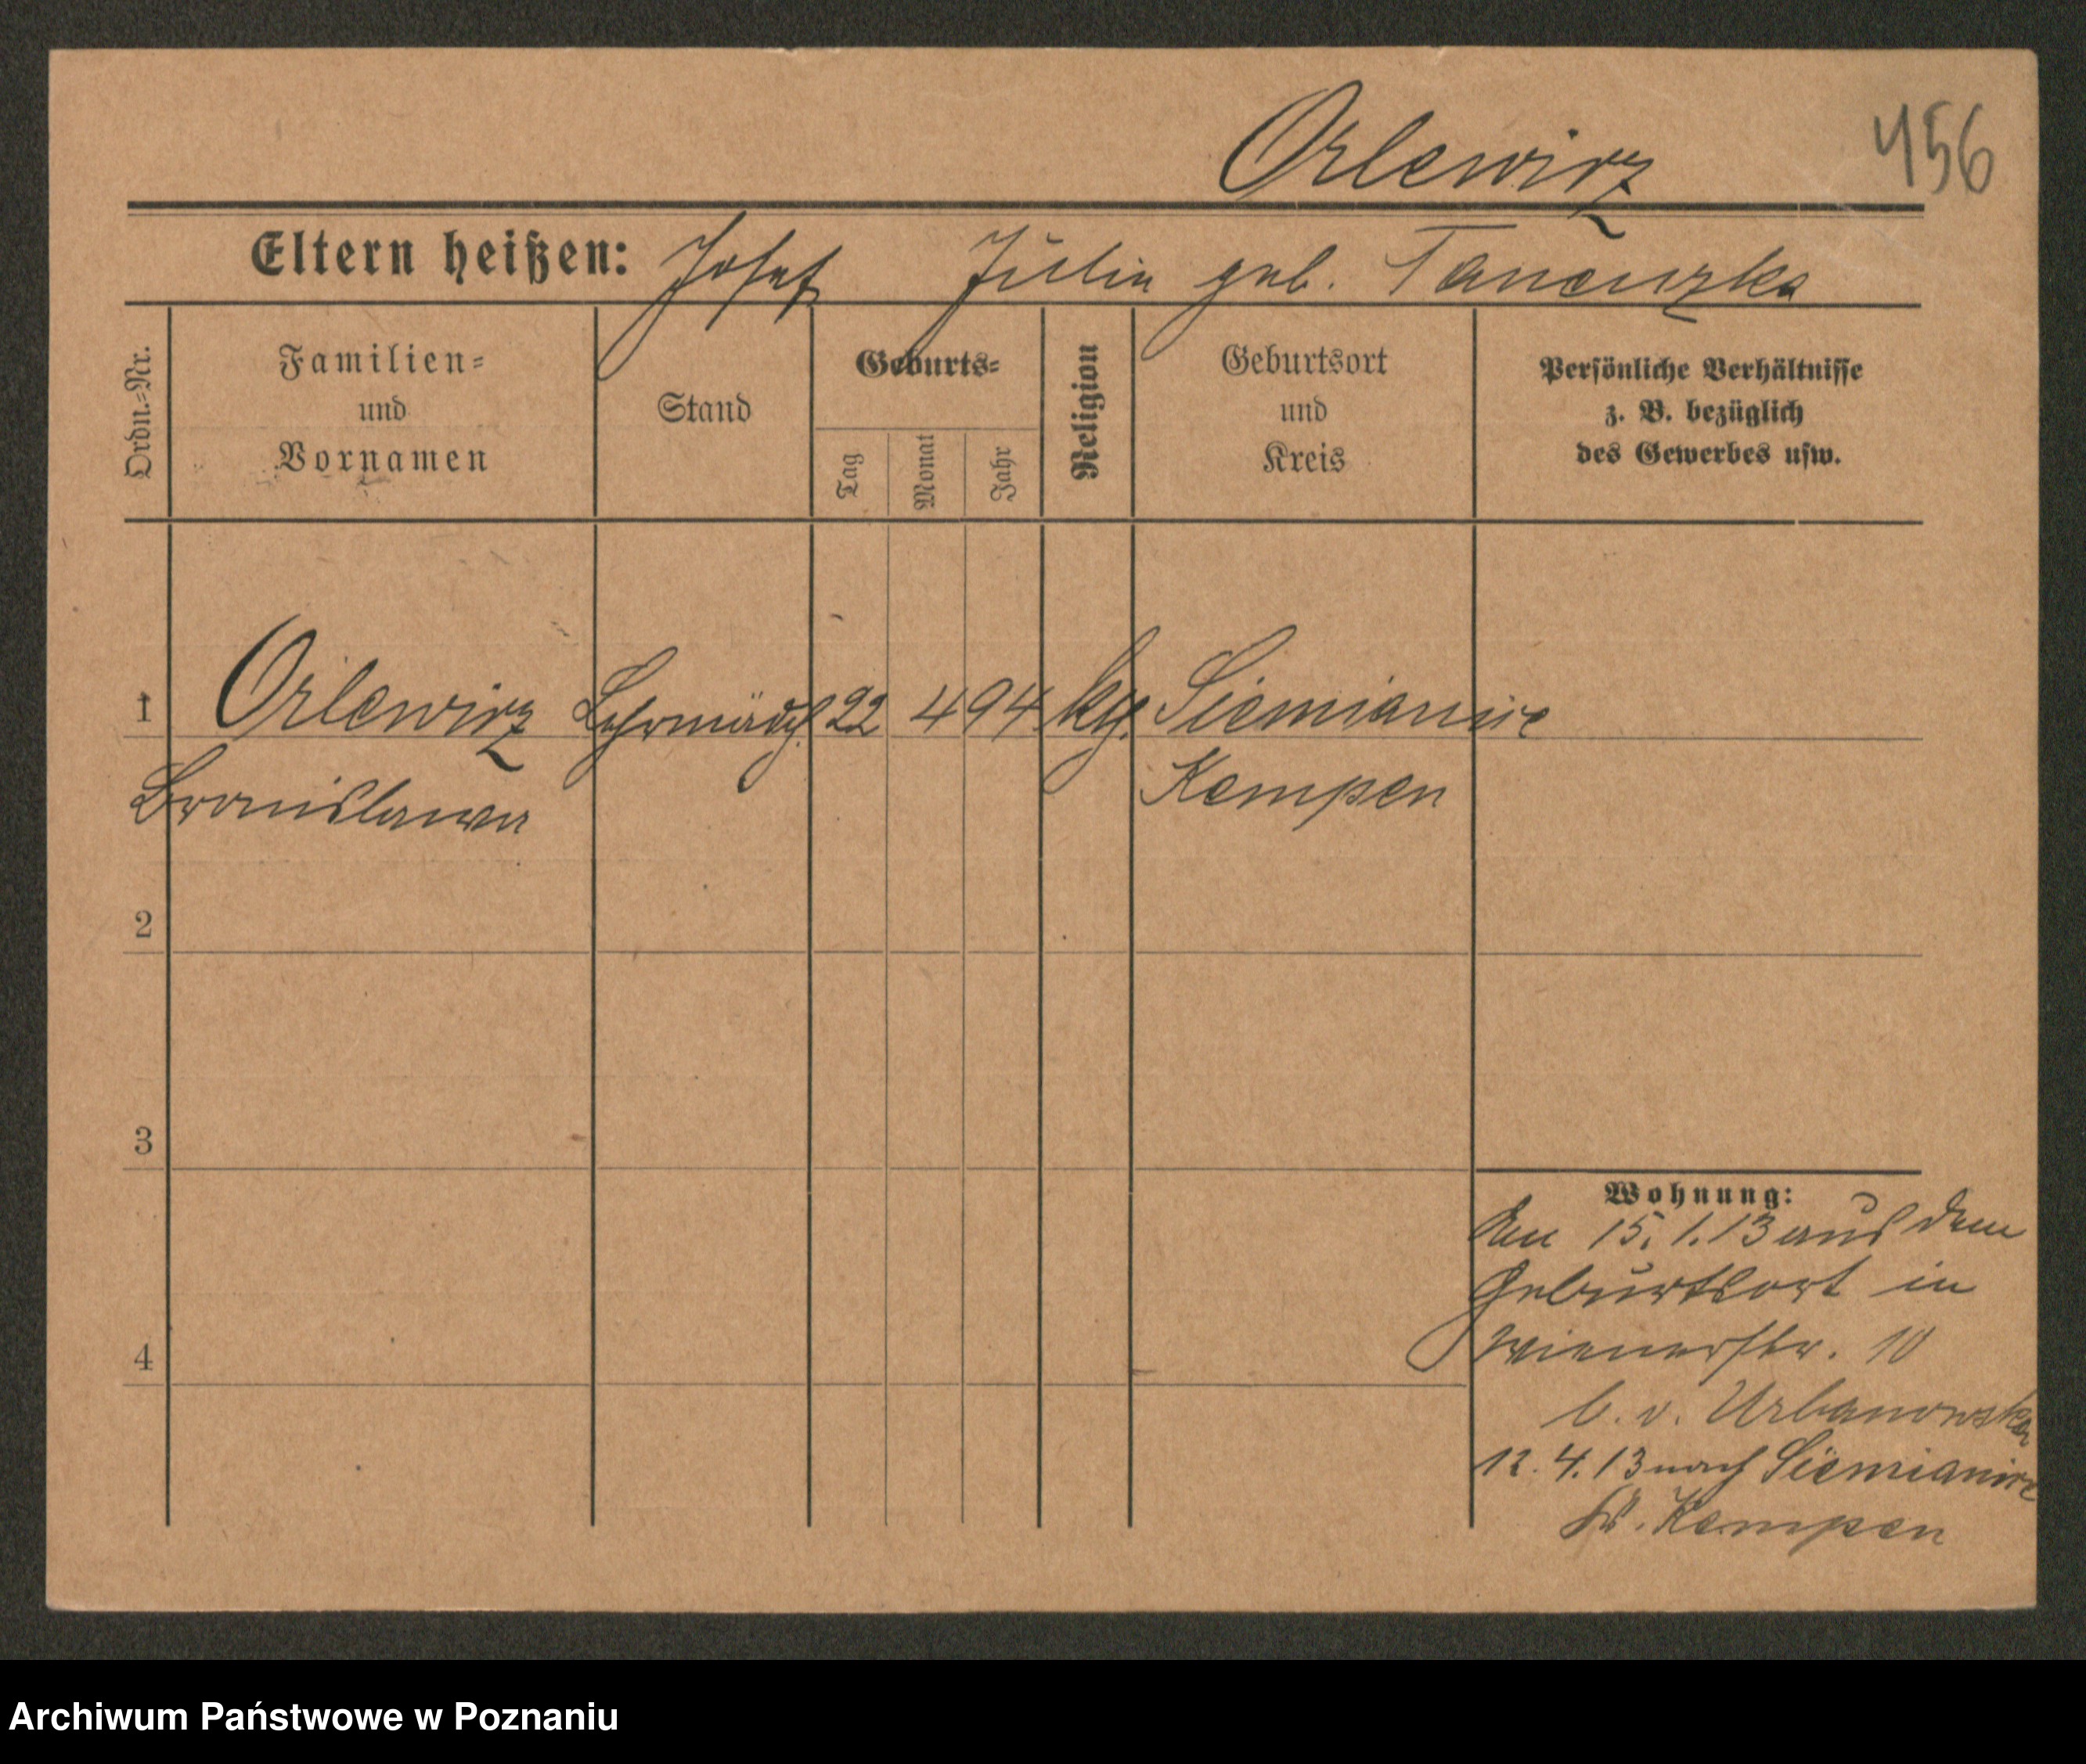 Orlewicz
456
Eltern heißen: Josef Julia geb. Tanenzka
Ordn.=Nr.
Familien=
und
Vornamen
Stand
Geburts=
Tag
Monat
Jahr
Religion
Geburtsort
und
Kreis
Persönliche Verhältnisse
z. B. bezüglich
des Gewerbes usw.
1 Orlewicz Lehrmädch. 22 4 94 kg. Siemianice
Bronislawa Kempen
2
3
4
Wohnung:
Am 15.1.13 aus dem
Geburtsort in
Wienerstr. 10
b. v. Urbanowska
12.4.13 nach Siemianice
Kr. Kempen
Archiwum Państwowe w Poznaniu